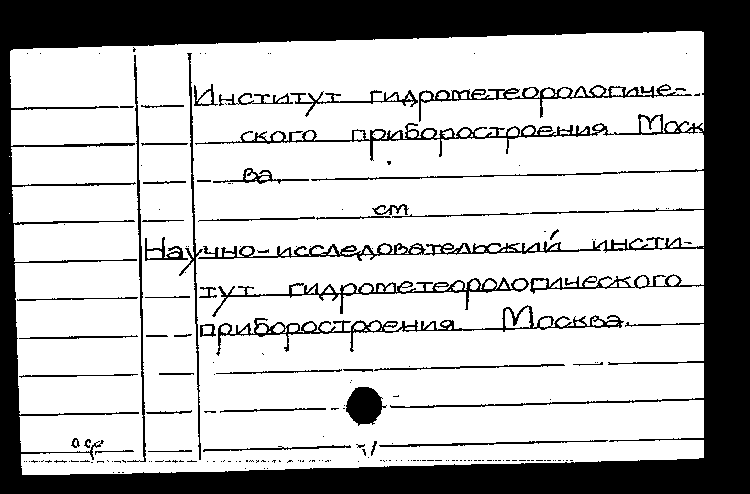 Институт гидрометеорологиче-
ского приборостроения. Моск
ва.
см.
Научно-исследовательский инсти-
тут гидрометеорологического
приборостроения. Москва.